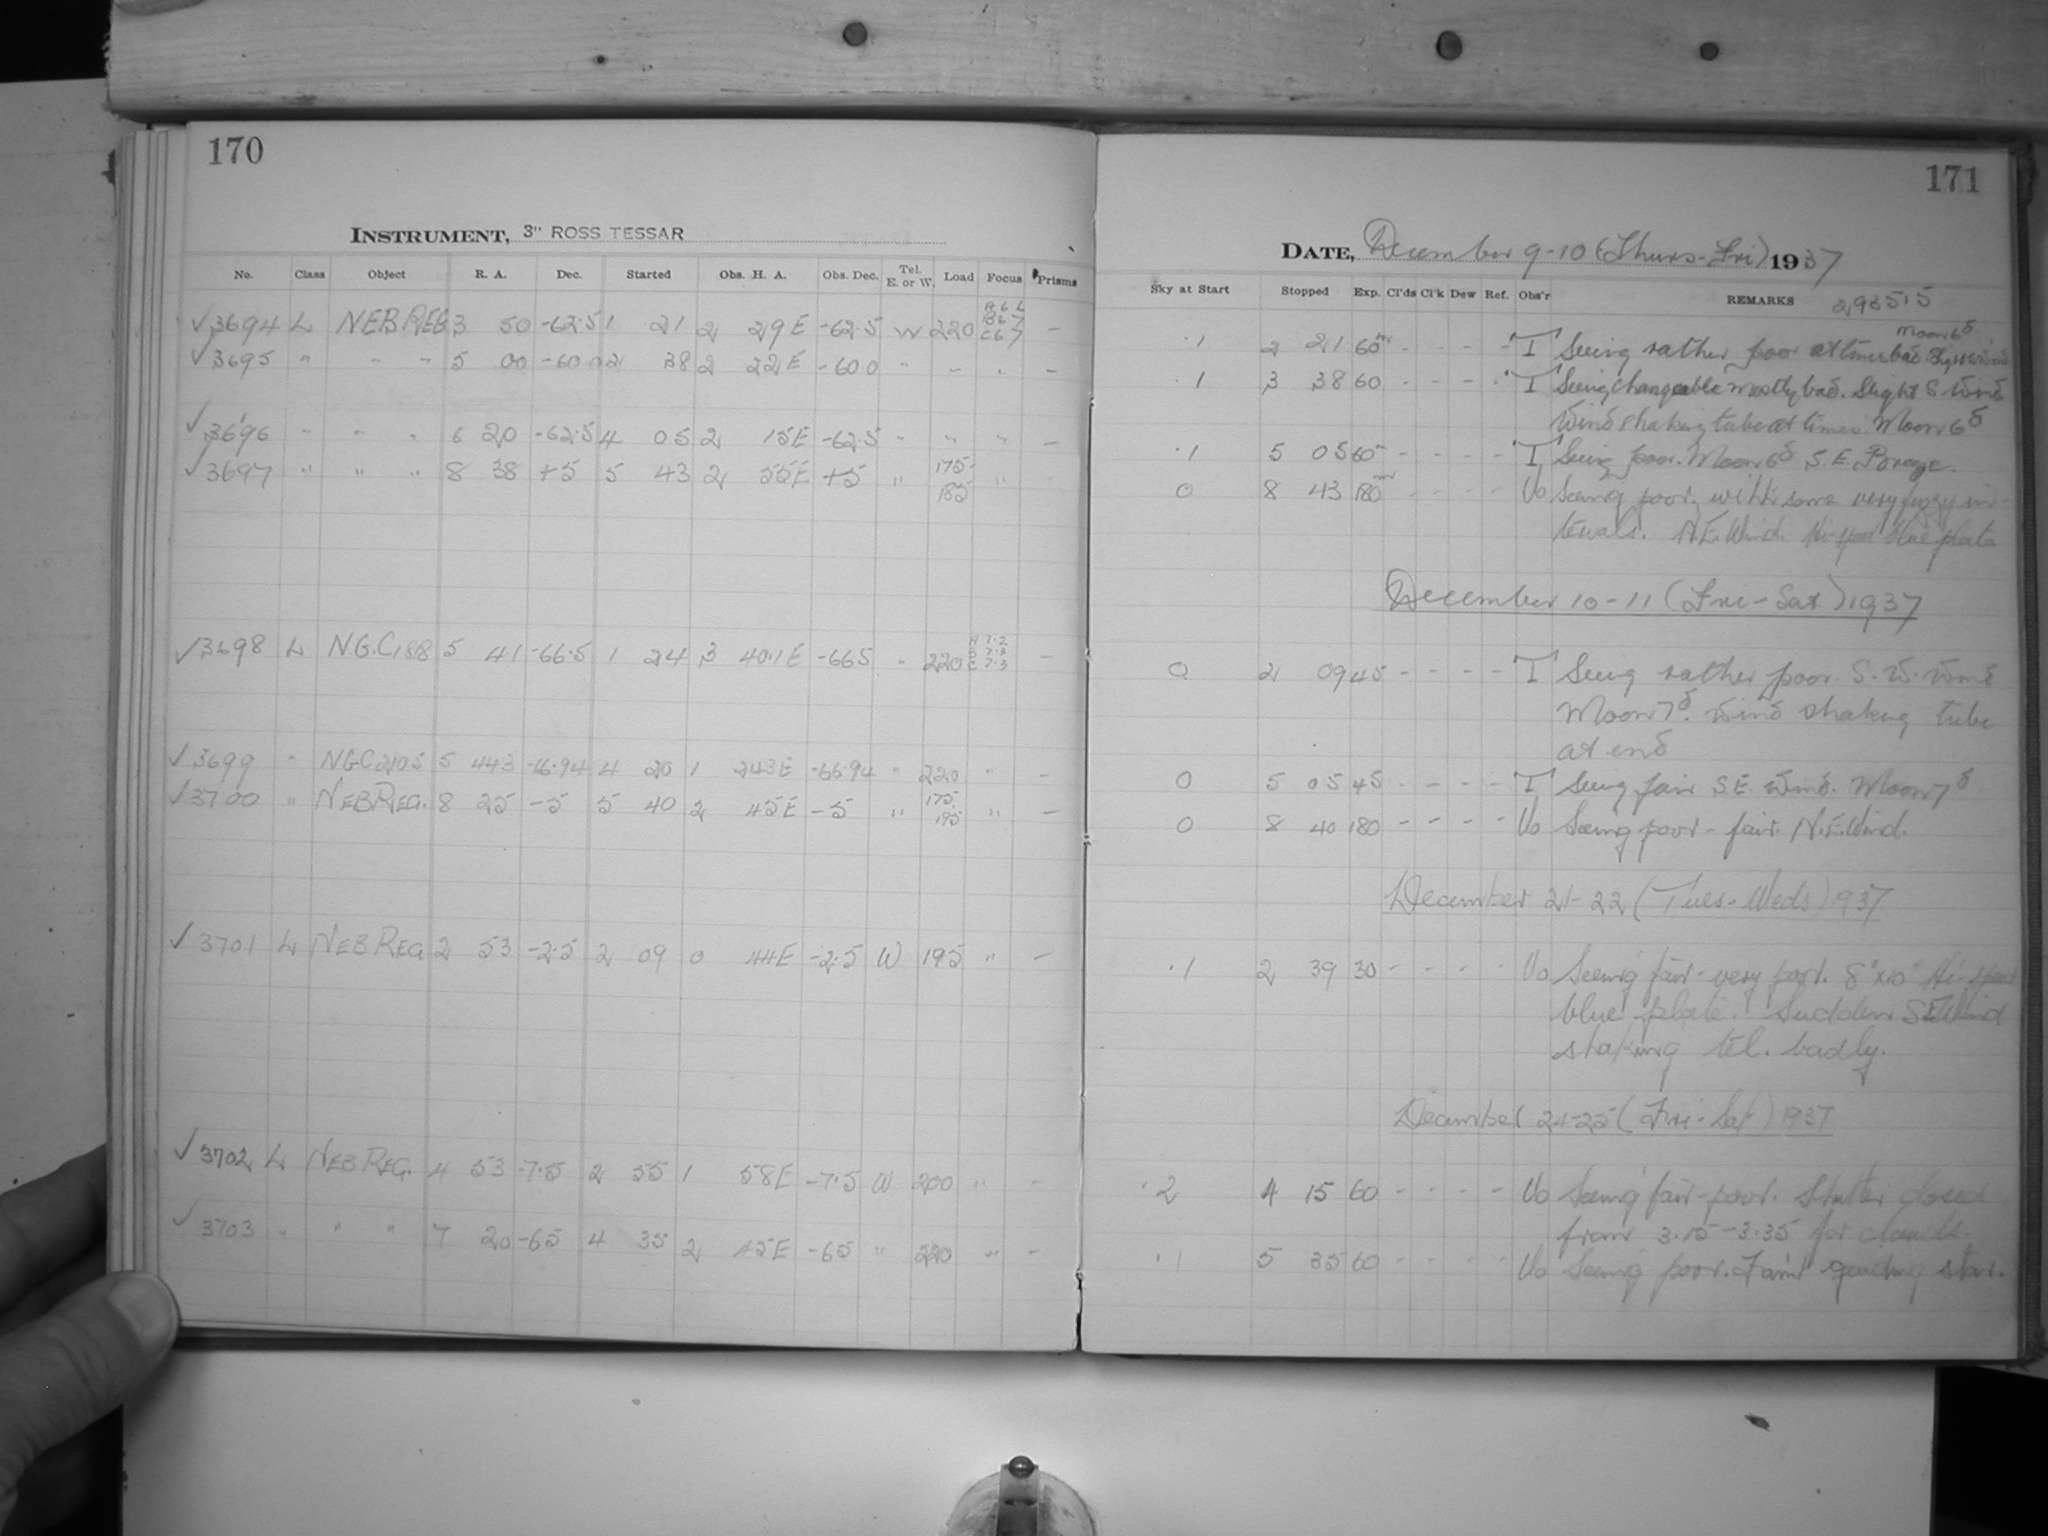 170
INSTRUMENT, 3" ROSS TESSAR
No. Class Object R. A. Dec. Started Obs. H. A. Obs. Dec. Tel. E. or W. Load Focus Prisms
✓3694 L NEB REG 3 50 -62.5 1 21 2 29E -62.5 W 220 A6.6 B6.7 C6.7 -
✓3695 " " " 5 00 -60.0 2 38 2 22E -60.0 " " " -
✓3696 " " " 6 20 -62.5 4 05 2 15E -62.5 " " " -
✓3697 " " " 8 38 +5 5 43 2 55E +5 " 175-185 " -
✓3698 L N.G.C.188 5 41 -66.5 1 24 3 40.1E -66.5 " 220 A 7.2 B 7.3 C 7.3 -
✓3699 " NGC2105 5 44.3 -66.94 4 20 1 24.3E -66.94 " 220 " -
✓3700 " NEB REG. 8 25 -5 5 40 2 45E -5 " 175-195 " -
✓3701 L NEB REG 2 53 -2.5 2 09 0 44E -2.5 W 195 " -
✓3702 L NEB REG. 4 53 -7.5 2 55 1 58E -7.5 W 200 " -
✓3703 " " " 7 20 -65 4 35 2 45E -65 " 220 " -
171
DATE, December 9-10 (Thurs-Fri) 1937
Sky at Start Stopped Exp. Cl'ds Cl'k Dew Ref. Obs'r REMARKS 293515
.1 2 21 60m - - - - T Seeing rather poor at times bad.
Moon 6d
.1 3 38 60 - - - - T Seeing changeable mostly bad. Slight S wind
Wind shaking tube at times. Moon 6d
.1 5 05 60 - - - - T Seeing poor. Moon 6d S.E. Breeze.
0 8 43 180m - - - - Uo Seeing poor, with some very fuzzy in-
tervals. N.E. Wind. Hi-speed blue plate
December 10-11 (Fri-Sat) 1937
0 2 09 45 - - - - T Seeing rather poor. S.W. Wind
Moon 7d. Wind shaking tube
at end
0 5 05 45 - - - - T Seeing fair S.E. Wind. Moon 7d
0 8 40 180 - - - - Uo Seeing poor-fair. N.E. Wind.
December 21-22 (Tues-Weds) 1937
.1 2 39 30 - - - - Uo Seeing fair-very poor. 8"x10" Hi-speed
blue plate. Sudden SE Wind
shaking tel. badly.
December 24-25 (Fri-Sat) 1937
.2 4 15 60 - - - - Uo Seeing fair-poor. Shutter closed
from 3.15-3.35 for clouds.
.1 5 35 60 - - - - Uo Seeing poor. Faint guiding star.